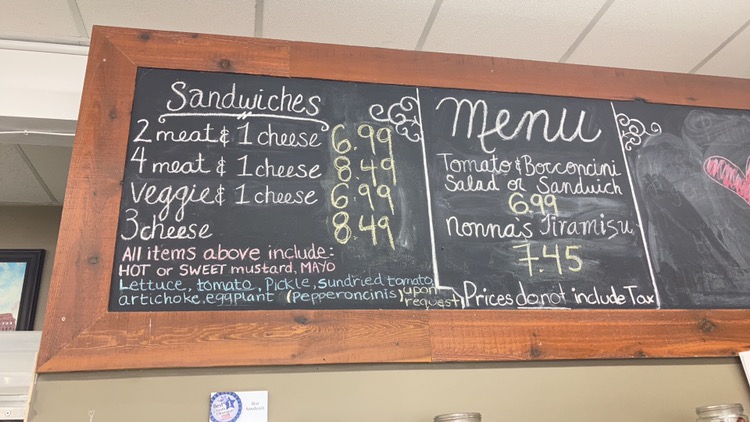 Sandwiches
2 meat & 1 cheese 6.99
4 meat & 1 cheese 8.49
Veggie & 1 cheese 6.99
3 cheese 8.49
All items above include:
HOT or SWEET mustard, MAYO
Lettuce, tomato, Pickle, sundried tomato,
artichoke, eggplant (Pepperoncinis) upon request
Menu
Tomato & Bocconcini
Salad or Sandwich
6.99
Nonna's Tiramisu
7.45
Prices do not include Tax
Best